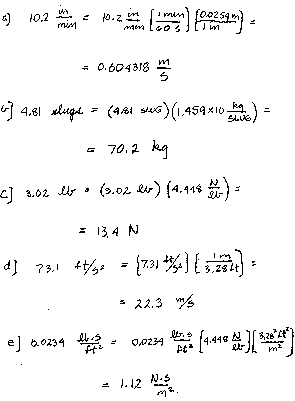 a) 10.2 in/min = 10.2 in/min [1 min/60 s] [0.0254 m/1 in] =
= 0.004318 m/s
b] 4.81 slugs = (4.81 SLUG) (1.459×10 kg/SLUG) =
= 70.2 kg
c] 3.02 lb = (3.02 lb) (4.448 N/lb) =
= 13.4 N
d] 73.1 ft/s² = [731 ft/s²] [1 m/3.28 ft] =
= 22.3 m/s
e] 0.0234 lb.s/ft² = 0.0234 lb.s/ft² [4.448 N/lb] [3.28² ft²/m²]
= 1.12 N.S/m².